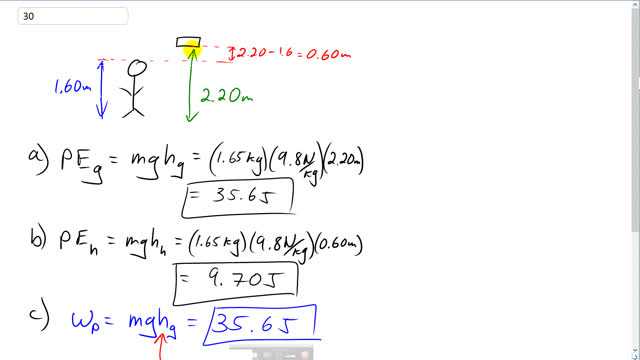 30
2.20-1.6=0.60m
1.60m
2.20m
a) PEg = mghg = (1.65kg)(9.8N/kg)(2.20m)
= 35.6J
b) PEh = mghh = (1.65kg)(9.8N/kg)(0.60m)
= 9.70J
c) Wp = mghg = 35.6J